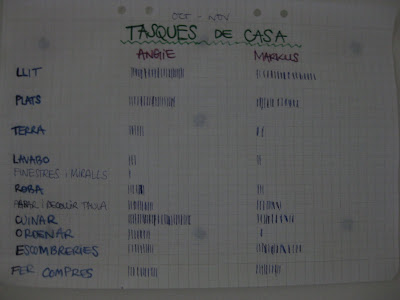 OCT - NOV
TASQUES DE CASA
ANGIE MARKUS
LLIT
PLATS
TERRA
LAVABO
FINESTRES i MIRALLS
ROBA
PARAR i DESPARAR TAULA
CUINAR
ORDENAR
ESCOMBRERIES
FER COMPRES